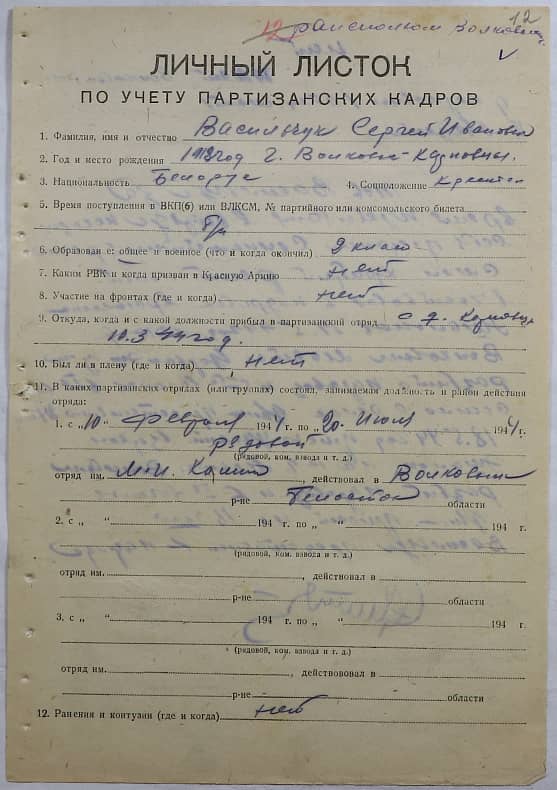 12
12 райисполком Волковыск
V
ЛИЧНЫЙ ЛИСТОК
ПО УЧЕТУ ПАРТИЗАНСКИХ КАДРОВ
1. Фамилия, имя и отчество Васильчук Сергей Иванович
2. Год и место рождения год г. Волковыск
3. Национальность Белорус 4. Соцположение
5. Время поступления в ВКП(б) или ВЛКСМ, № партийного или комсомольского билета
б/п
6. Образование: общее и военное (что и когда окончил) 2 класа
7. Каким РВК и когда призван в Красную Армию нет
8. Участие на фронтах (где и когда) нет
9. Откуда, когда и с какой должности прибыл в партизанский отряд с д.
10.3.44 год.
10. Был ли в плену (где и когда) нет
11. В каких партизанских отрядах (или группах) состоял, занимаемая должность и район действия
отряда:
1. с „10" февраля 1944 г. по „20" Июля 1944 г.
рядовой
(рядовой, ком. взвода и т. д.)
отряд им. , действовал в Волковыск
р-не Белосток области
2. с „ " 194 г. по „ " 194 г.
(рядовой, ком. взвода и т. д.)
отряд им. , действовал в
р-не области
3. с „ " 194 г. по „ " 194 г.
(рядовой, ком. взвода и т. д.)
отряд им. , действововал в
р-не области
12. Ранения и контузии (где и когда) нет